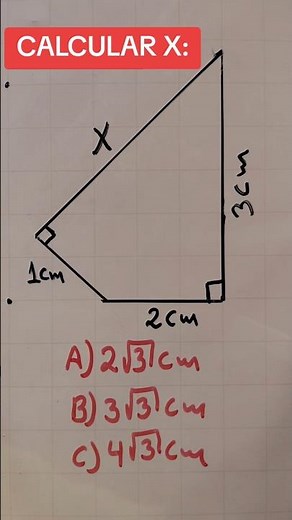 CALCULAR X:
X
3cm
1cm
2cm
A) 2√3 cm
B) 3√3 cm
C) 4√3 cm